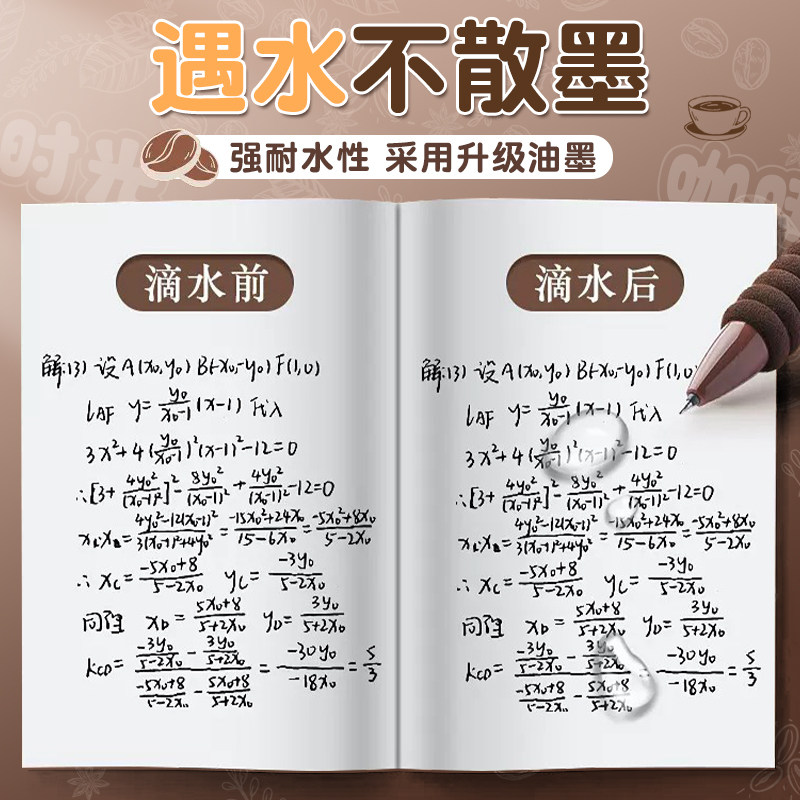 遇水不散墨
强耐水性 采用升级油墨
时光
咖啡
滴水前
解:(3) 设A(x₀,y₀) B(-x₀,-y₀) F(1,0)
lAF y=\frac{y₀}{x₀-1}(x-1) 代入
3x²+4(\frac{y₀}{x₀-1})²(x-1)²-12=0
∴[3+\frac{4y₀²}{(x₀-1)²}]²-\frac{8y₀²}{(x₀-1)²}+\frac{4y₀²}{(x₀-1)²}-12=0
=\frac{4y₀²-12(x₀-1)²}{3(x₀-1)²+4y₀²}=\frac{-15x₀²+24x₀}{15-6x₀}=\frac{-5x₀²+8x₀}{5-2x₀}
∴ x_C=\frac{-5x₀+8}{5-2x₀} y_C=\frac{-3y₀}{5-2x₀}
同理 x_D=\frac{5x₀+8}{5+2x₀} y_D=\frac{3y₀}{5+2x₀}
k_{CD}=\frac{\frac{-3y₀}{5-2x₀}-\frac{3y₀}{5+2x₀}}{\frac{-5x₀+8}{5-2x₀}-\frac{5x₀+8}{5+2x₀}}=\frac{-30y₀}{-18x₀}=\frac{5}{3}
滴水后
解:(3) 设A(x₀,y₀) B(-x₀,-y₀) F(1,0
lAF y=\frac{y₀}{x₀-1}(x-1) 代入
3x²+4(\frac{y₀}{x₀-1})²(x-1)²-12=0
∴[3+\frac{4y₀²}{(x₀-1)²}]²-\frac{8y₀²}{(x₀-1)²}+\frac{4y₀²}{(x₀-1)²}-12=0
=\frac{4y₀²-12(x₀-1)²}{3(x₀-1)²+4y₀²}=\frac{-15x₀²+24x₀}{15-6x₀}=\frac{-5x₀²+8x₀}{5-2x₀}
∴ x_C=\frac{-5x₀+8}{5-2x₀} y_C=\frac{-3y₀}{5-2x₀}
同理 x_D=\frac{5x₀+8}{5+2x₀} y_D=\frac{3y₀}{5+2x₀}
k_{CD}=\frac{\frac{-3y₀}{5-2x₀}-\frac{3y₀}{5+2x₀}}{\frac{-5x₀+8}{5-2x₀}-\frac{5x₀+8}{5+2x₀}}=\frac{-30y₀}{-18x₀}=\frac{5}{3}